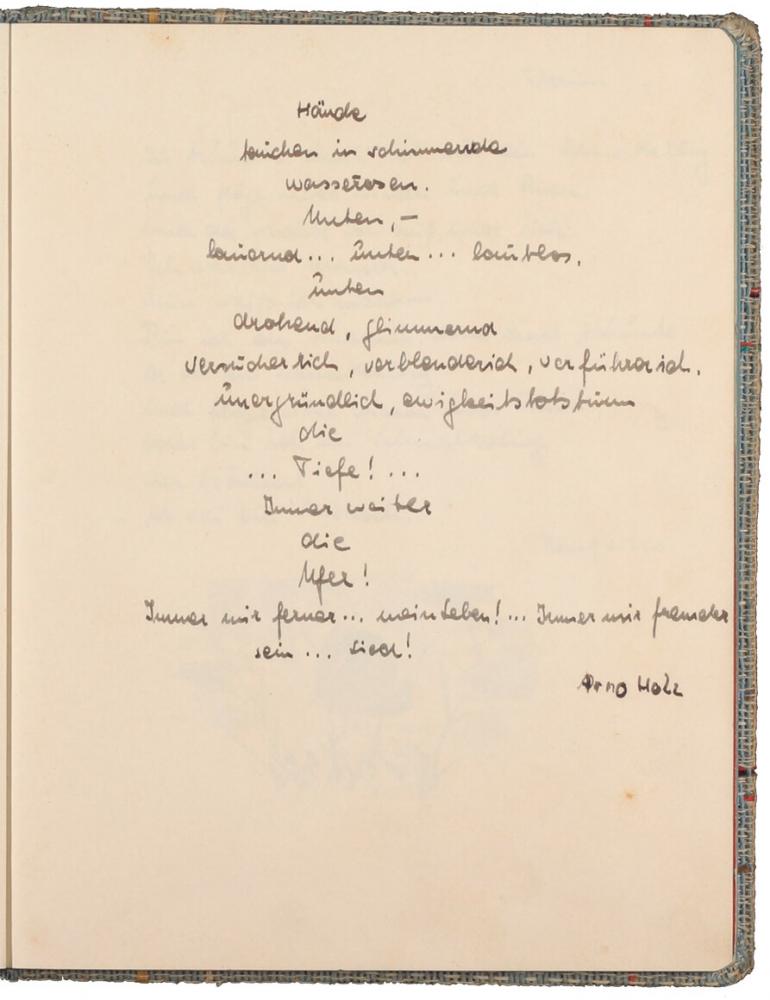 Hände
tauchen in schimmernde
wasserosen.
Unten, –
lauernd... unten... lautlos,
unten
drohend, glimmernd
versucherlich, verblenderich, verführerich.
unergründlich, ewigkeitstotstumm
die
... Tiefe! ...
Immer weiter
die
Ufer!
Immer mir ferner... mein Leben! ... Immer mir fremder
sein ... Lied!
Arno Holz